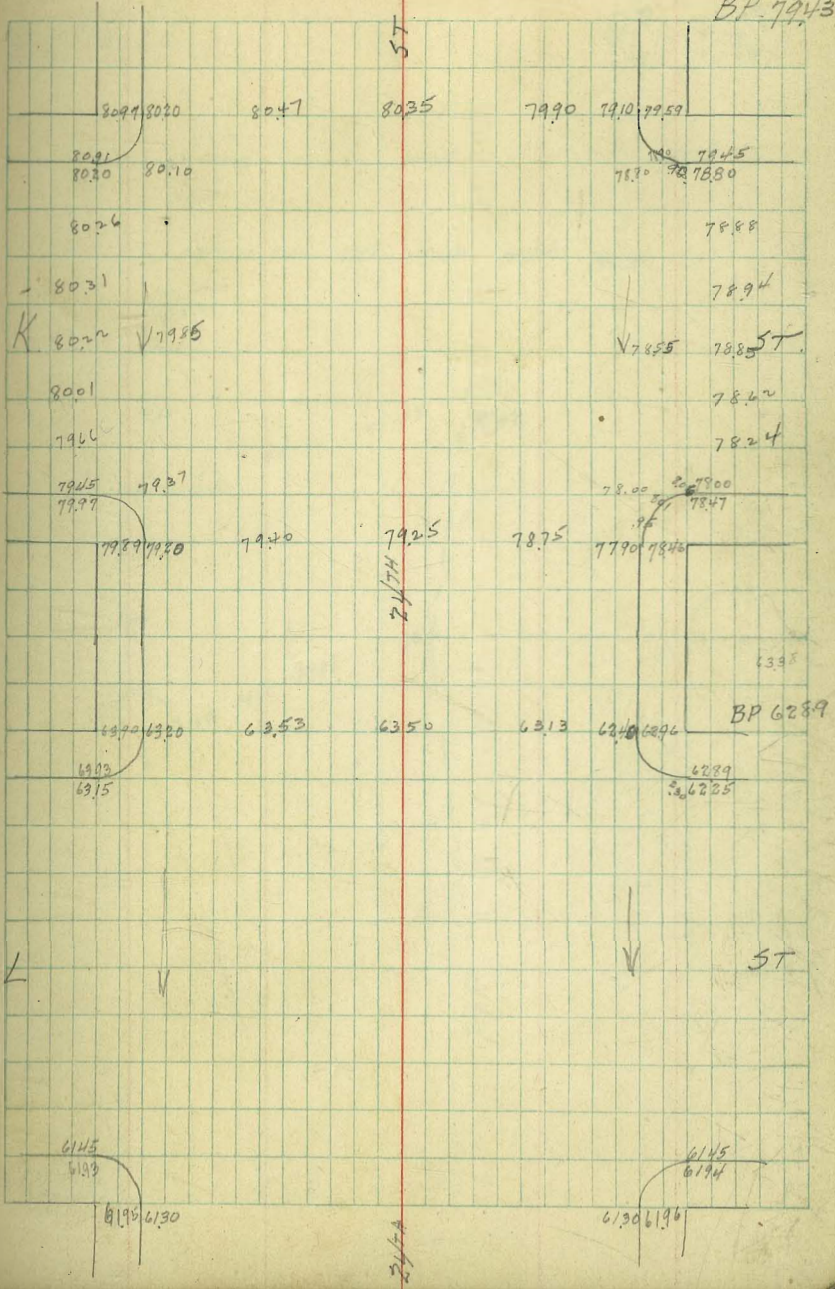 BP. 7943
ST
8097 8020 8047 8035 7990 7910 7959
8091 7945
8020 80.10 7880
8026 78.88
8031 78.94
K 7985 7855 7885 ST.
8001
7824
7945 79.37 78.00 7900
79.97 7847
7989 7920 7940 7925 7875 7790 7846
24TH
6338
BP 6289
6390 6320 6353 6350 6313 6240 6296
6393 6289
6315 6225
L ST
6145 6145
6193 6194
6195 6130 6130 6196
24TH